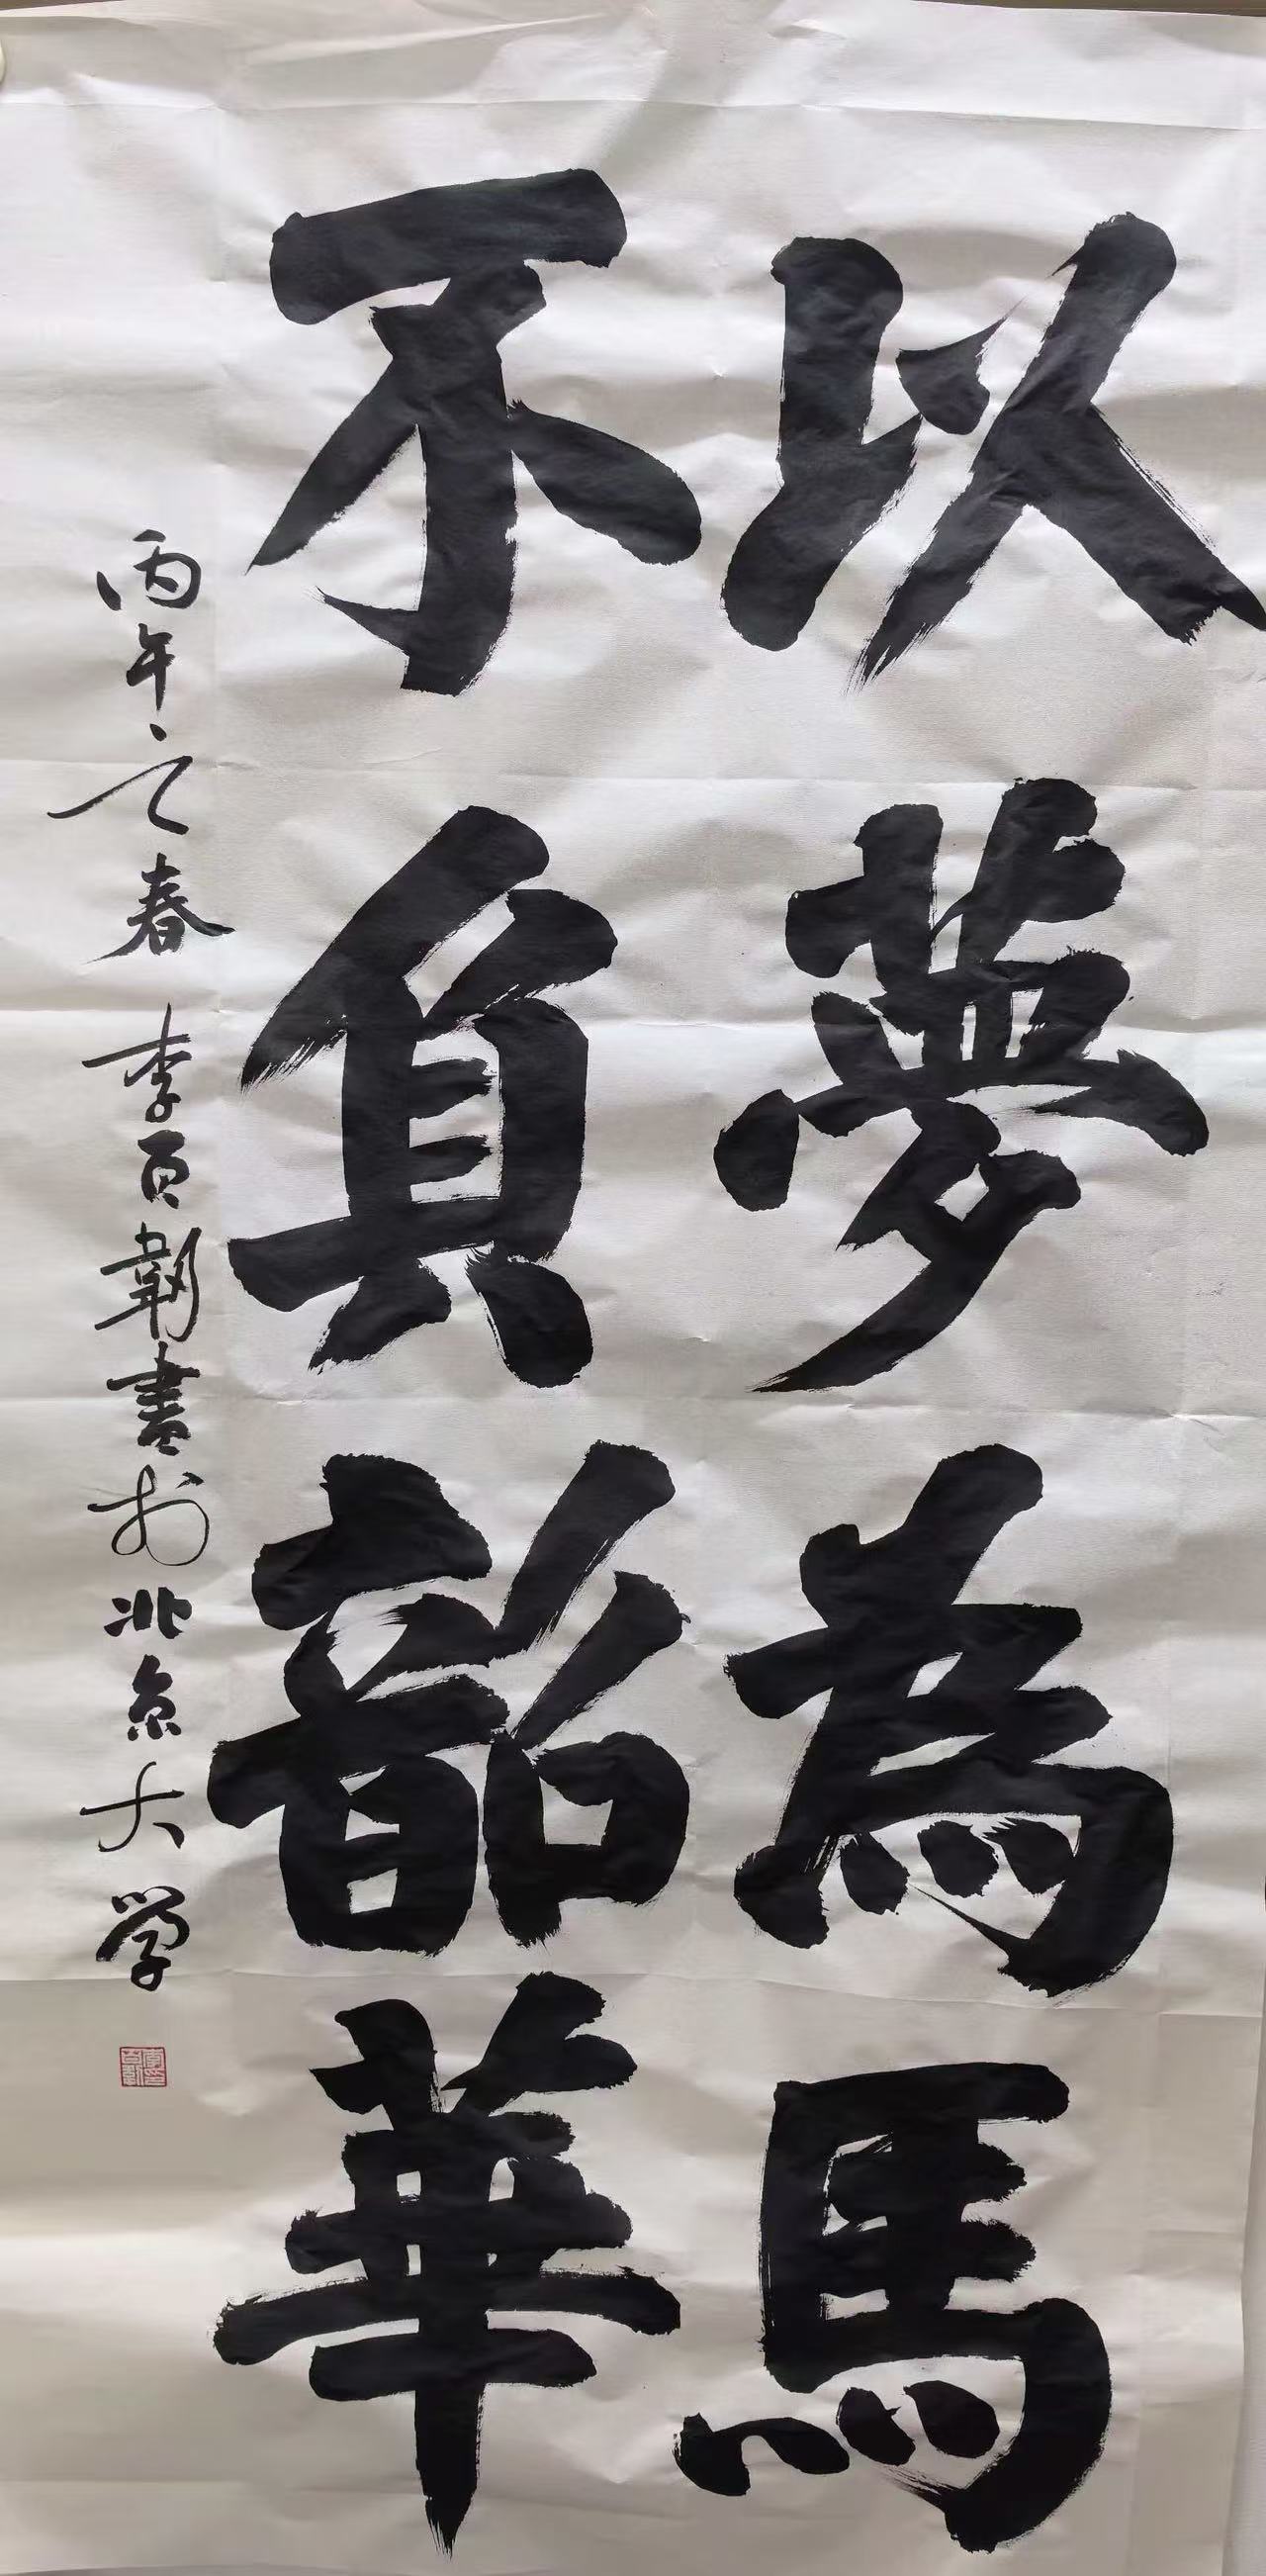 以夢為馬
不負韶華
丙午之春 李百韌書於北京大學